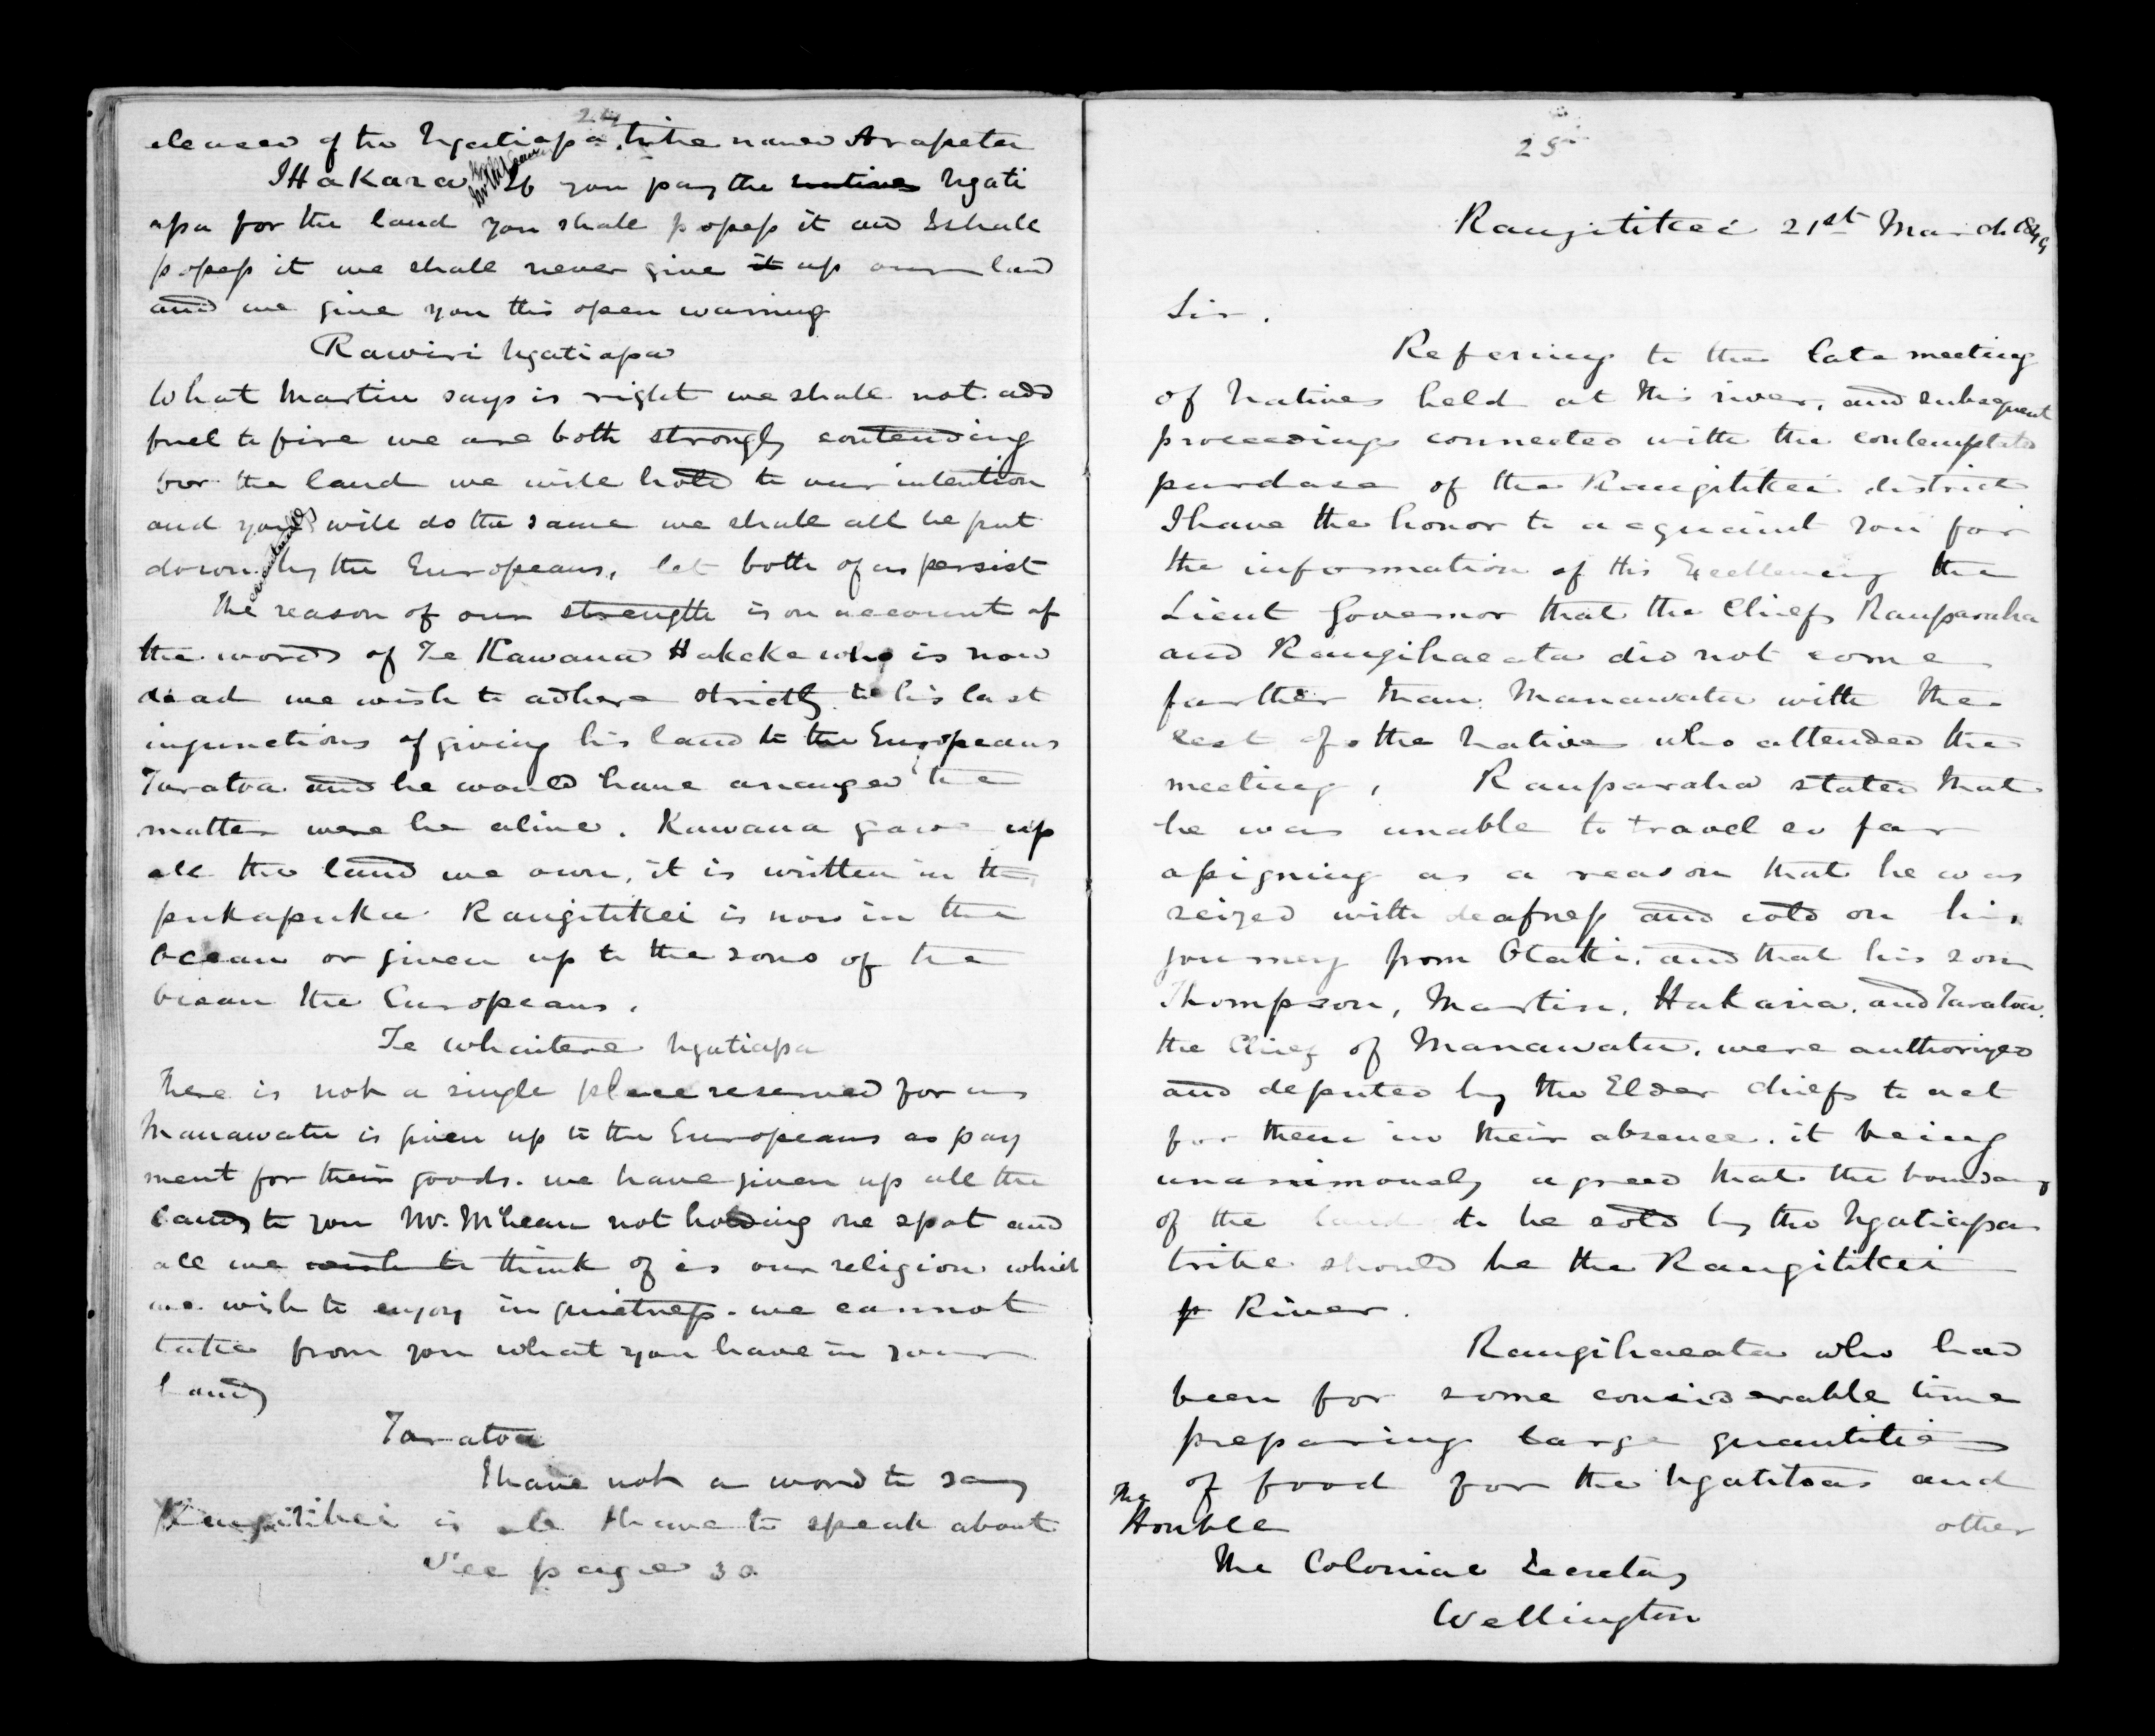 24
eleased of the Ngatiapa tribe named Arapeta
IHakara Mr McLean If you pay the natives Ngati
apa for the land you shall possess it and I shall
possess it we shall never give it up our land
and we give you this open warning
Rawiri Ngatiapa
What Martin says is right we shall not add
fuel to fire we are both strongly contending
for the land we will hold to our intention
and you will do the same we shall all be put
down eventually by the Europeans, let both of us persist
The reason of our strength is on account of
the words of Te Kawana Hakeke who is now
dead we wish to adhere strictly to his last
injunctions of giving his land to the Europeans
Taratoa and he would have arranged the
matter were he alive. Kawana gave up
all the land we own, it is written in the
pukapuka Rangitikei is now in the
Ocean or given up to the sons of the
Ocean the Europeans.
Te Whaitere Ngatiapa
There is not a single place reserved for us
Manawatu is given up to the Europeans as pay
ment for their goods. we have given up all the
lands to you Mr. McLean not holding one spot and
all we wish to think of is our religion which
we wish to enjoy in quietness. we cannot
take from you what you have in your
hands
Taratoa
I have not a word to say
Rangitikei is all I have to speak about
See page 30
25
Rangitikei 21st March 1849
Sir.
Refering to the late meeting
of Natives held at this river, and subsequent
proceedings connected with the contemplated
purchase of the Rangitikei district
I have the honor to acquaint you for
the information of His Excellency the
Lieut Governor that the Chiefs Rauparaha
and Rangihaeata did not come
farther than Manawatu with the
rest of the Natives who attended the
meeting, Rauparaha stated that
he was unable to travel so far
assigning as a reason that he was
seized with deafness and cold on his
journey from Otaki, and that his son
Thompson, Martin, Hakaria, and Taratoa
the Chiefs of Manawatu, were authorized
and deputed by the Elder chiefs to act
for them in their absence. it being
unanimously agreed that the boundary
of the land to be sold by the Ngatiapa
tribe should be the Rangitikei
River.
Rangihaeata who had
been for some considerable time
preparing large quantities
of food for the Ngatitoas and
other
The
Honble
The Colonial Secretary
Wellington